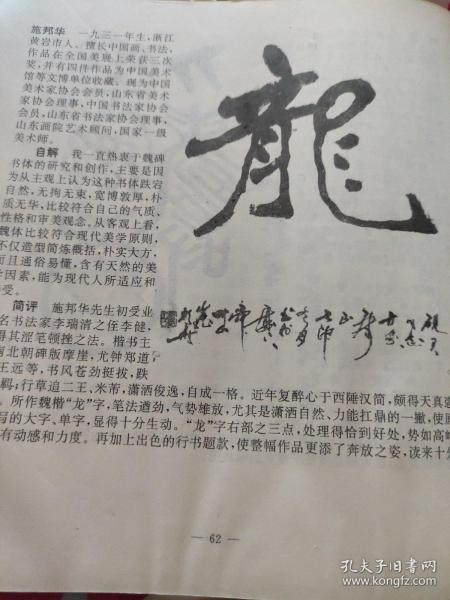 施邦华 一九三一年生,浙江
黄岩市人。擅长中国画、书法,
作品在全国美展上荣获三次
奖,并有四件作品为中国美术
馆等文博单位收藏。现为中国
美术家协会会员,山东省美术
家协会理事,中国书法家协会
会员,山东省书法家协会理事,
山东画院艺术顾问,国家一级
美术师。
自解 我一直热衷于魏碑
书体的研究和创作,主要是因
为从主观上认为这种书体跌宕
自然,无拘无束,宽博敦厚,朴
质无华,比较符合自己的气质、
性格和审美观念。从客观上看,
魏体比较符合现代美学原则,
不仅造型简炼概括,朴实大方,
而且通俗易懂,含有天然的美
学因素,能为现代人所适应和
受。
简评 施邦华先生初受业
名书法家李瑞清之侄李健,
得其涩笔顿挫之法。楷书主
南北朝碑版摩崖,尤钟郑道
王远等,书风苍劲挺拔,跌
羁;行草追二王、米芾,潇洒俊逸,自成一格。近年复醉心于西陲汉简,颇得天真
。所作魏楷“龙”字,笔法遒劲,气势雄放,尤其是潇洒自然、力能扛鼎的一撇,使
写的大字、单字,显得十分生动。“龙”字右部之三点,处理得恰到好处,势如高
有动感和力度。再加上出色的行书题款,使整幅作品更添了奔放之姿,读来十
龍
— 62 —
孔夫子旧书网
www.kongfz.com